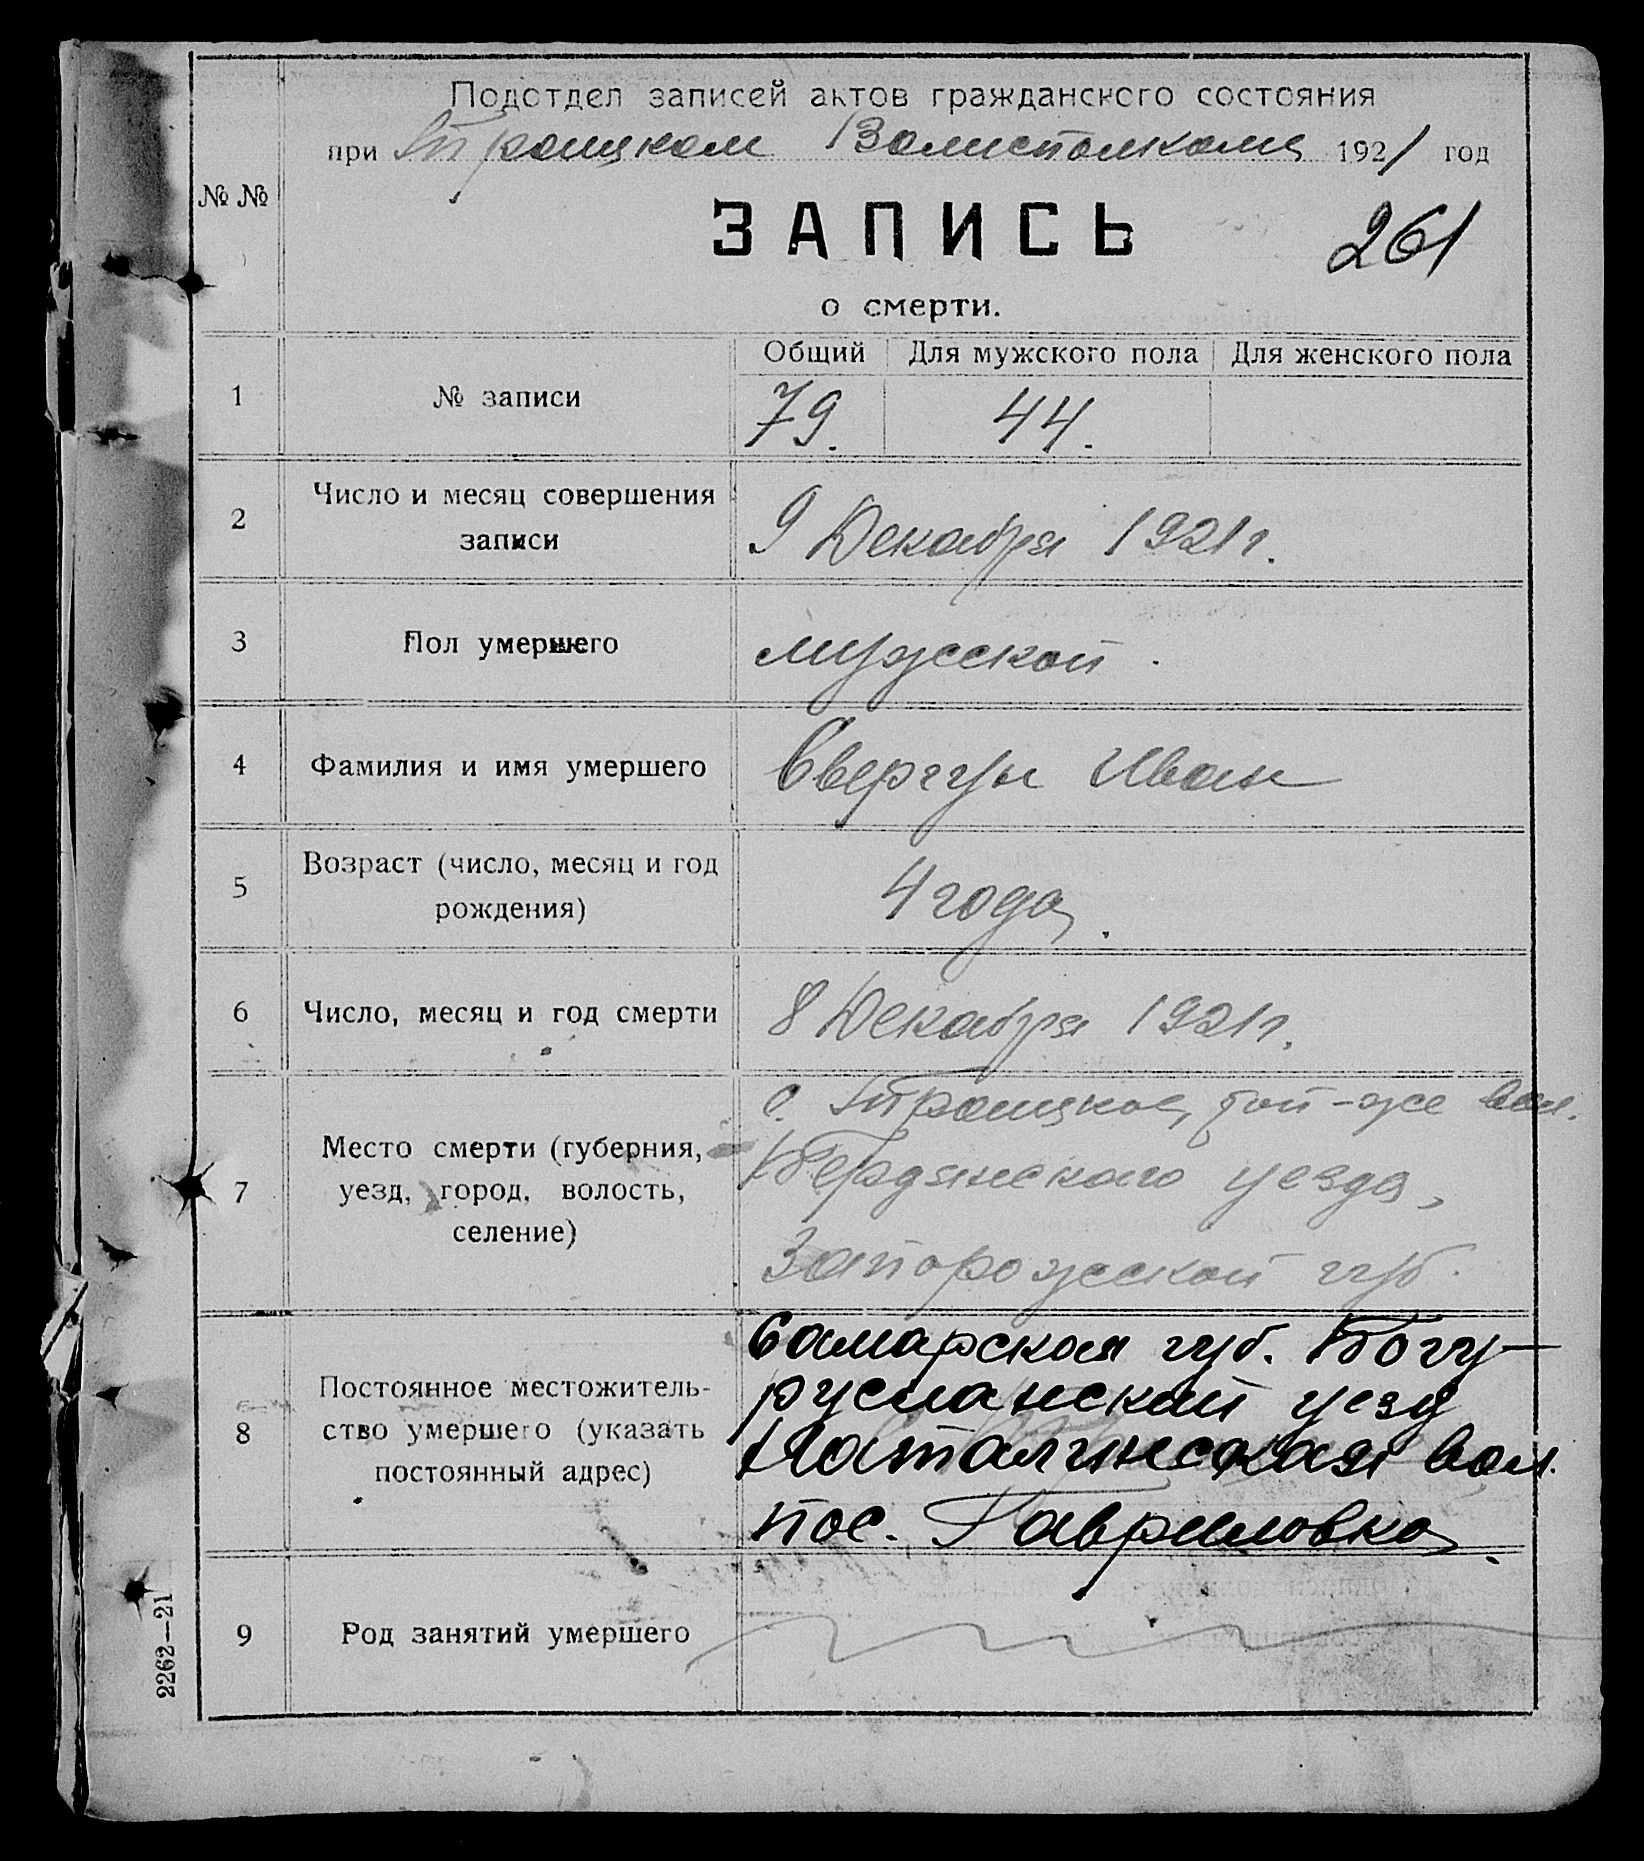 Подотдел записей актов гражданского состояния
при Троицком Волисполкома 1921 год
№ №
ЗАПИСЬ
261
о смерти.
Общий Для мужского пола Для женского пола
1 № записи 79. 44.
Число и месяц совершения
2 записи 9 Декабря 1921 г.
3 Пол умершего мужской.
4 Фамилия и имя умершего Свергун Иван
Возраст (число, месяц и год
5 рождения) 4 года.
6 Число, месяц и год смерти 8 Декабря 1921 г.
с. Троицкое, той-же вол.
Место смерти (губерния,
Бердянского уезда,
7 уезд, город, волость,
селение)
Запорожской губ.
Самарская губ. Бугу-
Постоянное местожитель-
русланский уезд
8 ство умершего (указать
Наталинская вол.
постоянный адрес)
пос. Гавриловка.
9 Род занятий умершего
2262—21